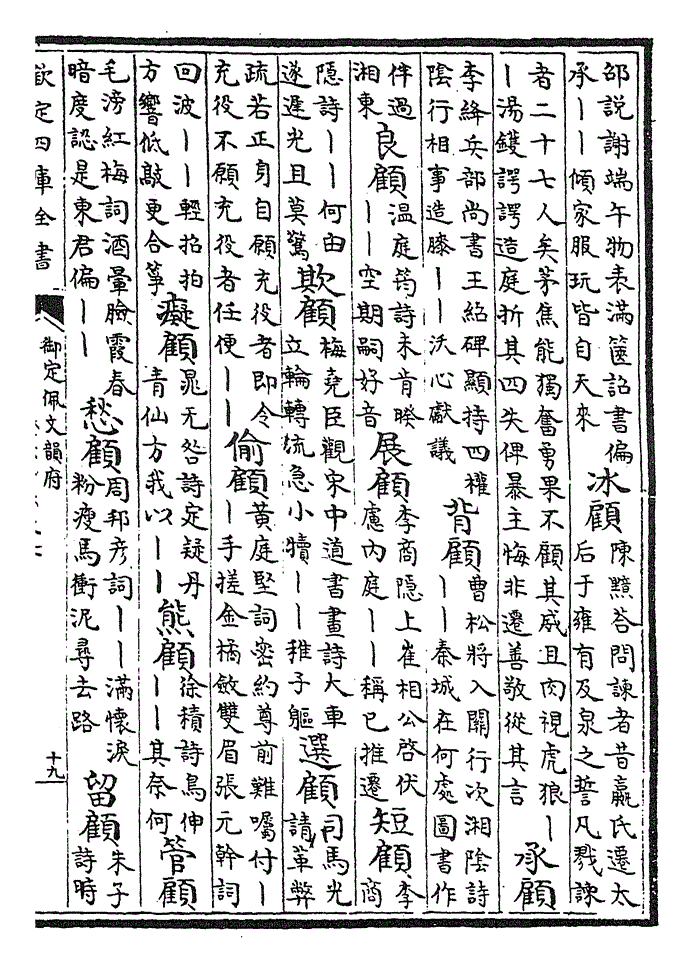 邵説謝端午物表滿篋詔書偏
承｜｜傾家服玩皆自天來
冰顧
陳黯答問諫者昔嬴氏遷太
后于雍有及泉之誓凡戮諫
者二十七人矣茅焦能獨奮勇果不顧其威且肉視虎狼｜
｜湯鑊諤諤造庭折其四失俾暴主悔非遷善敬從其言
承顧
李絳兵部尚書王紹碑顯持四權
陰行相事造膝｜｜沃心獻議
背顧
曹松將入關行次湘陰詩
｜｜秦城在何處圖書作
伴過
湘東
良顧
温庭筠詩未肯睽
｜｜空期嗣好音
展顧
李商隱上崔相公啓伏
慮内庭｜｜稱已推遷
短顧
李
商
隱詩｜｜何由
遂遲光且莫驚
欺顧
梅堯臣觀宋中道書畫詩大車
立輪轉流急小犢｜｜稚子軀
選顧
司馬光
請革弊
疏若正身自願充役者即令
充役不願充役者任便｜｜
偷顧
黄庭堅詞密約尊前難囑付｜
｜手搓金橘斂雙眉張元幹詞
回波｜｜輕招拍
方響低敲更合箏
癡顧
晁无咎詩定疑丹
青仙方我以｜｜
熊顧
徐積詩鳥伸
｜｜其奈何
管顧
毛滂紅梅詞酒暈臉霞春
暗度認是東君偏｜｜
愁顧
周邦彦詞｜｜滿懷淚
粉瘦馬衝泥尋去路
留顧
朱子
詩時
欽定四庫全書
御定佩文韻府
十九